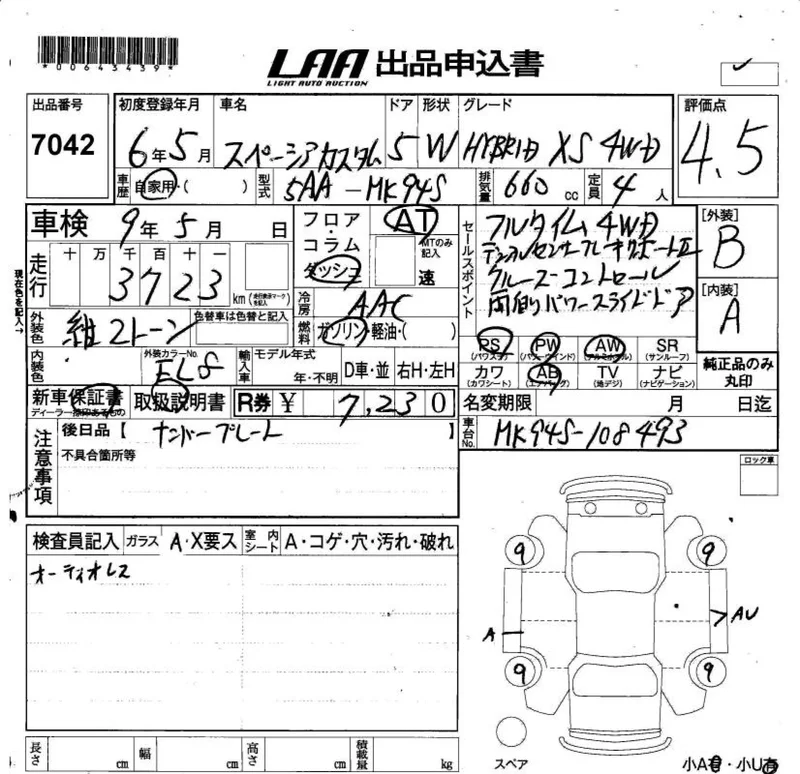 *00643439*
LAA 出品申込書
LIGHT AUTO AUCTION
出品番号 初度登録年月 車名 ドア 形状 グレード 評価点
7042 6年5月 スペーシアカスタム 5 W HYBRID XS 4WD 4.5
車歴 自家用・( ) 型式 5AA-MK94S 排気量 660cc 定員 4人
車検 9年5月 日 フロア・コラム ダッシュ AT MTのみ記入 速
セールスポイント フルタイム4WD
クルーズコントロール
両側パワースライドドア
[外装] B
[内装] A
現在色を記入→
走行 十 万 千 百 十 一
3723 km
冷房 AAC
外装色 紺2トーン 色替車は色替と記入 燃料 ガソリン・軽油・( )
PS (パワステ) PW (パワーウインド) AW (アルミホイル) SR (サンルーフ)
カワ (カワシート) AB (エアバック) TV (地デジ) ナビ (ナビゲーション)
純正品のみ丸印
内装色 外装カラーNo. EL8 輸入車 モデル年式 年・不明 D車・並 右H・左H
新車保証書 取扱説明書 R券 ¥ 7,230 名変期限 月 日迄
車台No. MK94S-108493
注意事項 後日品【 ナンバープレート 】
不具合箇所等
ロック車
検査員記入 ガラス A・X要ス 室内シート A・コゲ・穴・汚れ・破れ
オーディオレス
9 9
A AU
9 9
スペア
長さ cm 幅 cm 高さ cm 積載量 kg
小A有・小U有